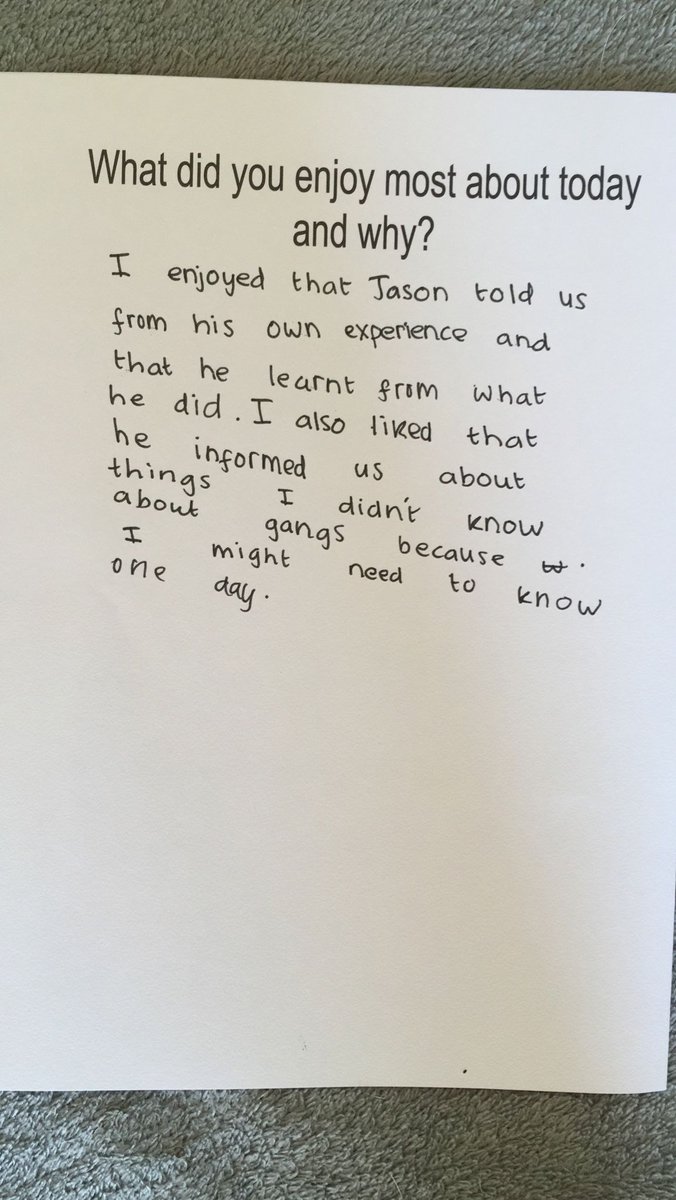 What did you enjoy most about today
and why?
I enjoyed that Jason told us
from his own experience and
that he learnt from what
he did. I also liked that
he informed us about
things I didn't know
about gangs because
I might need to know
one day.